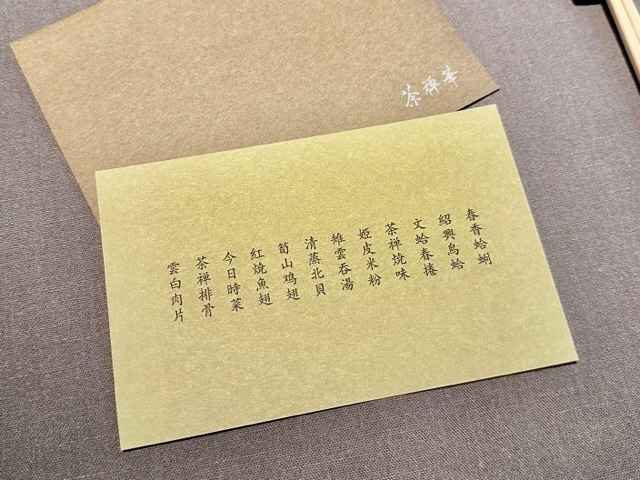 茶禅華
春香蛤蜊
紹興烏蛤
文蛤春捲
茶禅焼味
姫皮米粉
雉雲呑湯
清蒸北貝
筍山鶏翅
紅焼魚翅
今日時菜
茶禅排骨
雲白肉片